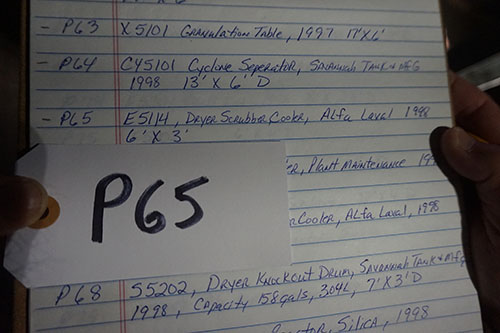 - P63 X5101 Granulation Table, 1997 17'X6'
- P64 CY5101 Cyclone Seperator, Savannah Tank & Mfg
1998 13' X 6' D
- P65 E5114, Dryer Scrubber Cooler, Alfa Laval 1998
6' X 3'
er, Plant Maintenance 19
P65
Cooler, Alfa Laval, 1998
P68 S5202, Dryer Knockout Drum, Savannah Tank & Mfg
1998, Capacity 158gals, 304L, 7'X3'D
Silica, 1998